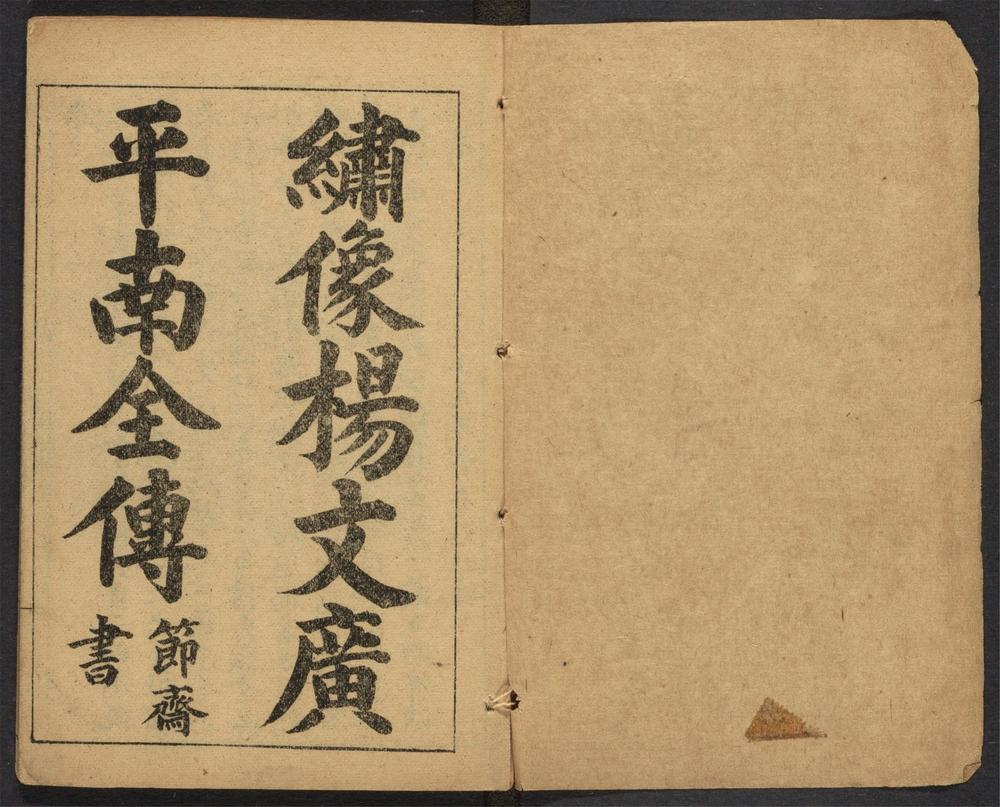 繡像楊文廣
平南全傳
節齋
書